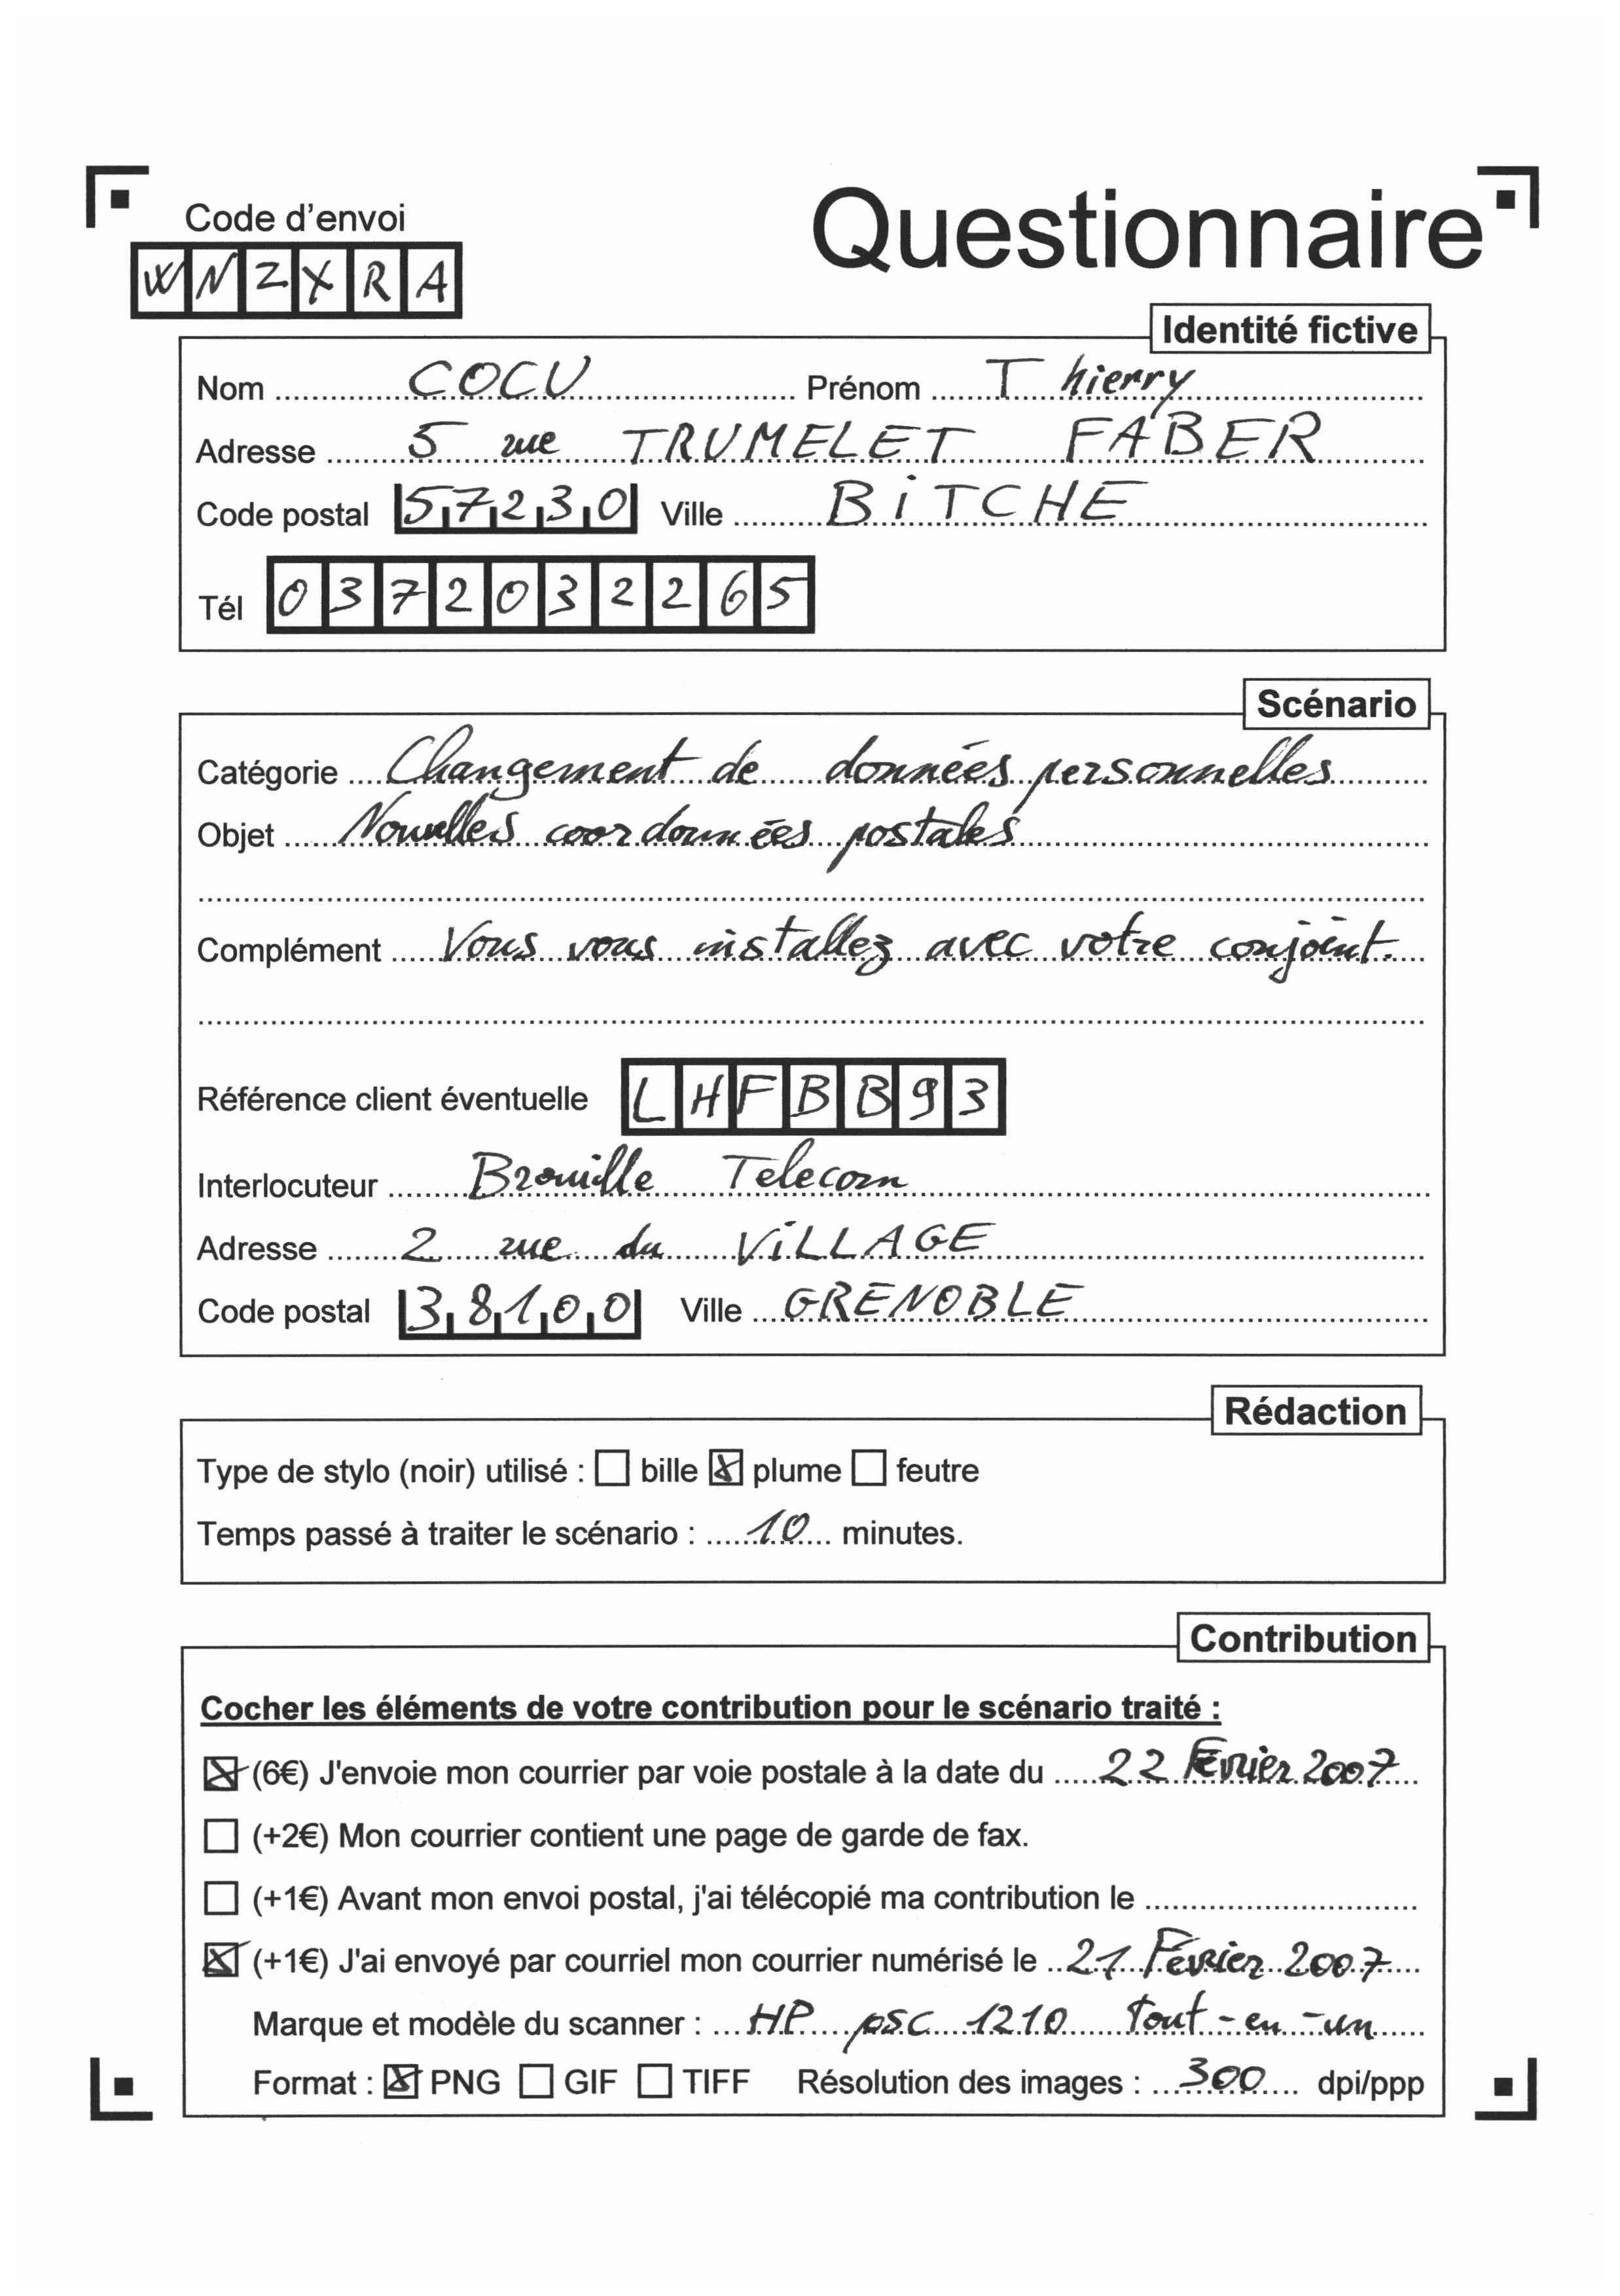 Code d'envoi
Questionnaire
WNZXRA
Identité fictive
Nom COCU Prénom Thierry
Adresse 5 rue TRUMELET FABER
Code postal 57230 Ville BiTCHE
Tél 0372032265
Scénario
Catégorie Changement de données personnelles
Objet Nouvelles coordonnées postales
Complément Vous vous installez avec votre conjoint.
Référence client éventuelle LHFBB93
Interlocuteur Brouille Telecom
Adresse 2 rue du ViLLAGE
Code postal 38100 Ville GRENOBLE
Rédaction
Type de stylo (noir) utilisé : ☐ bille ☒ plume ☐ feutre
Temps passé à traiter le scénario : 10 minutes.
Contribution
Cocher les éléments de votre contribution pour le scénario traité :
☒ (6€) J'envoie mon courrier par voie postale à la date du 22 Février 2007
☐ (+2€) Mon courrier contient une page de garde de fax.
☐ (+1€) Avant mon envoi postal, j'ai télécopié ma contribution le
☒ (+1€) J'ai envoyé par courriel mon courrier numérisé le 21 Février 2007
Marque et modèle du scanner : HP psc 1210 Tout-en-un
Format : ☒ PNG ☐ GIF ☐ TIFF Résolution des images : 300 dpi/ppp